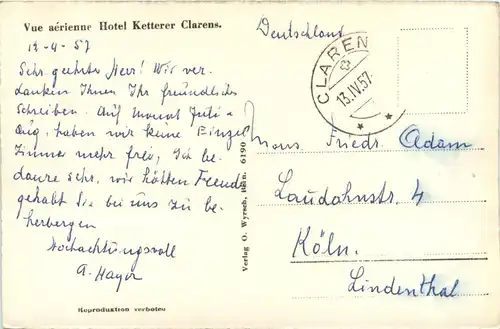 Vue aérienne Hotel Ketterer Clarens.
12-4-57
Sehr geehrter Herr! Wir ver-
danken Ihnen Ihr freundliches
Schreiben. Auf Monat Juli -
Aug. haben wir keine Einzel
Zimmer mehr frei, Ich be-
daure sehr, wir hätten Freude
gehabt Sie bei uns zu be-
herbergen
Hochachtungsvoll
A. Mayer
Reproduktion verboten
Verlag O. Wyrsch, 6190
Deutschland
CLARENS
13.IV.57
Mons. Friedr. Adam
Laudahnstr. 4
Köln.
Lindenthal